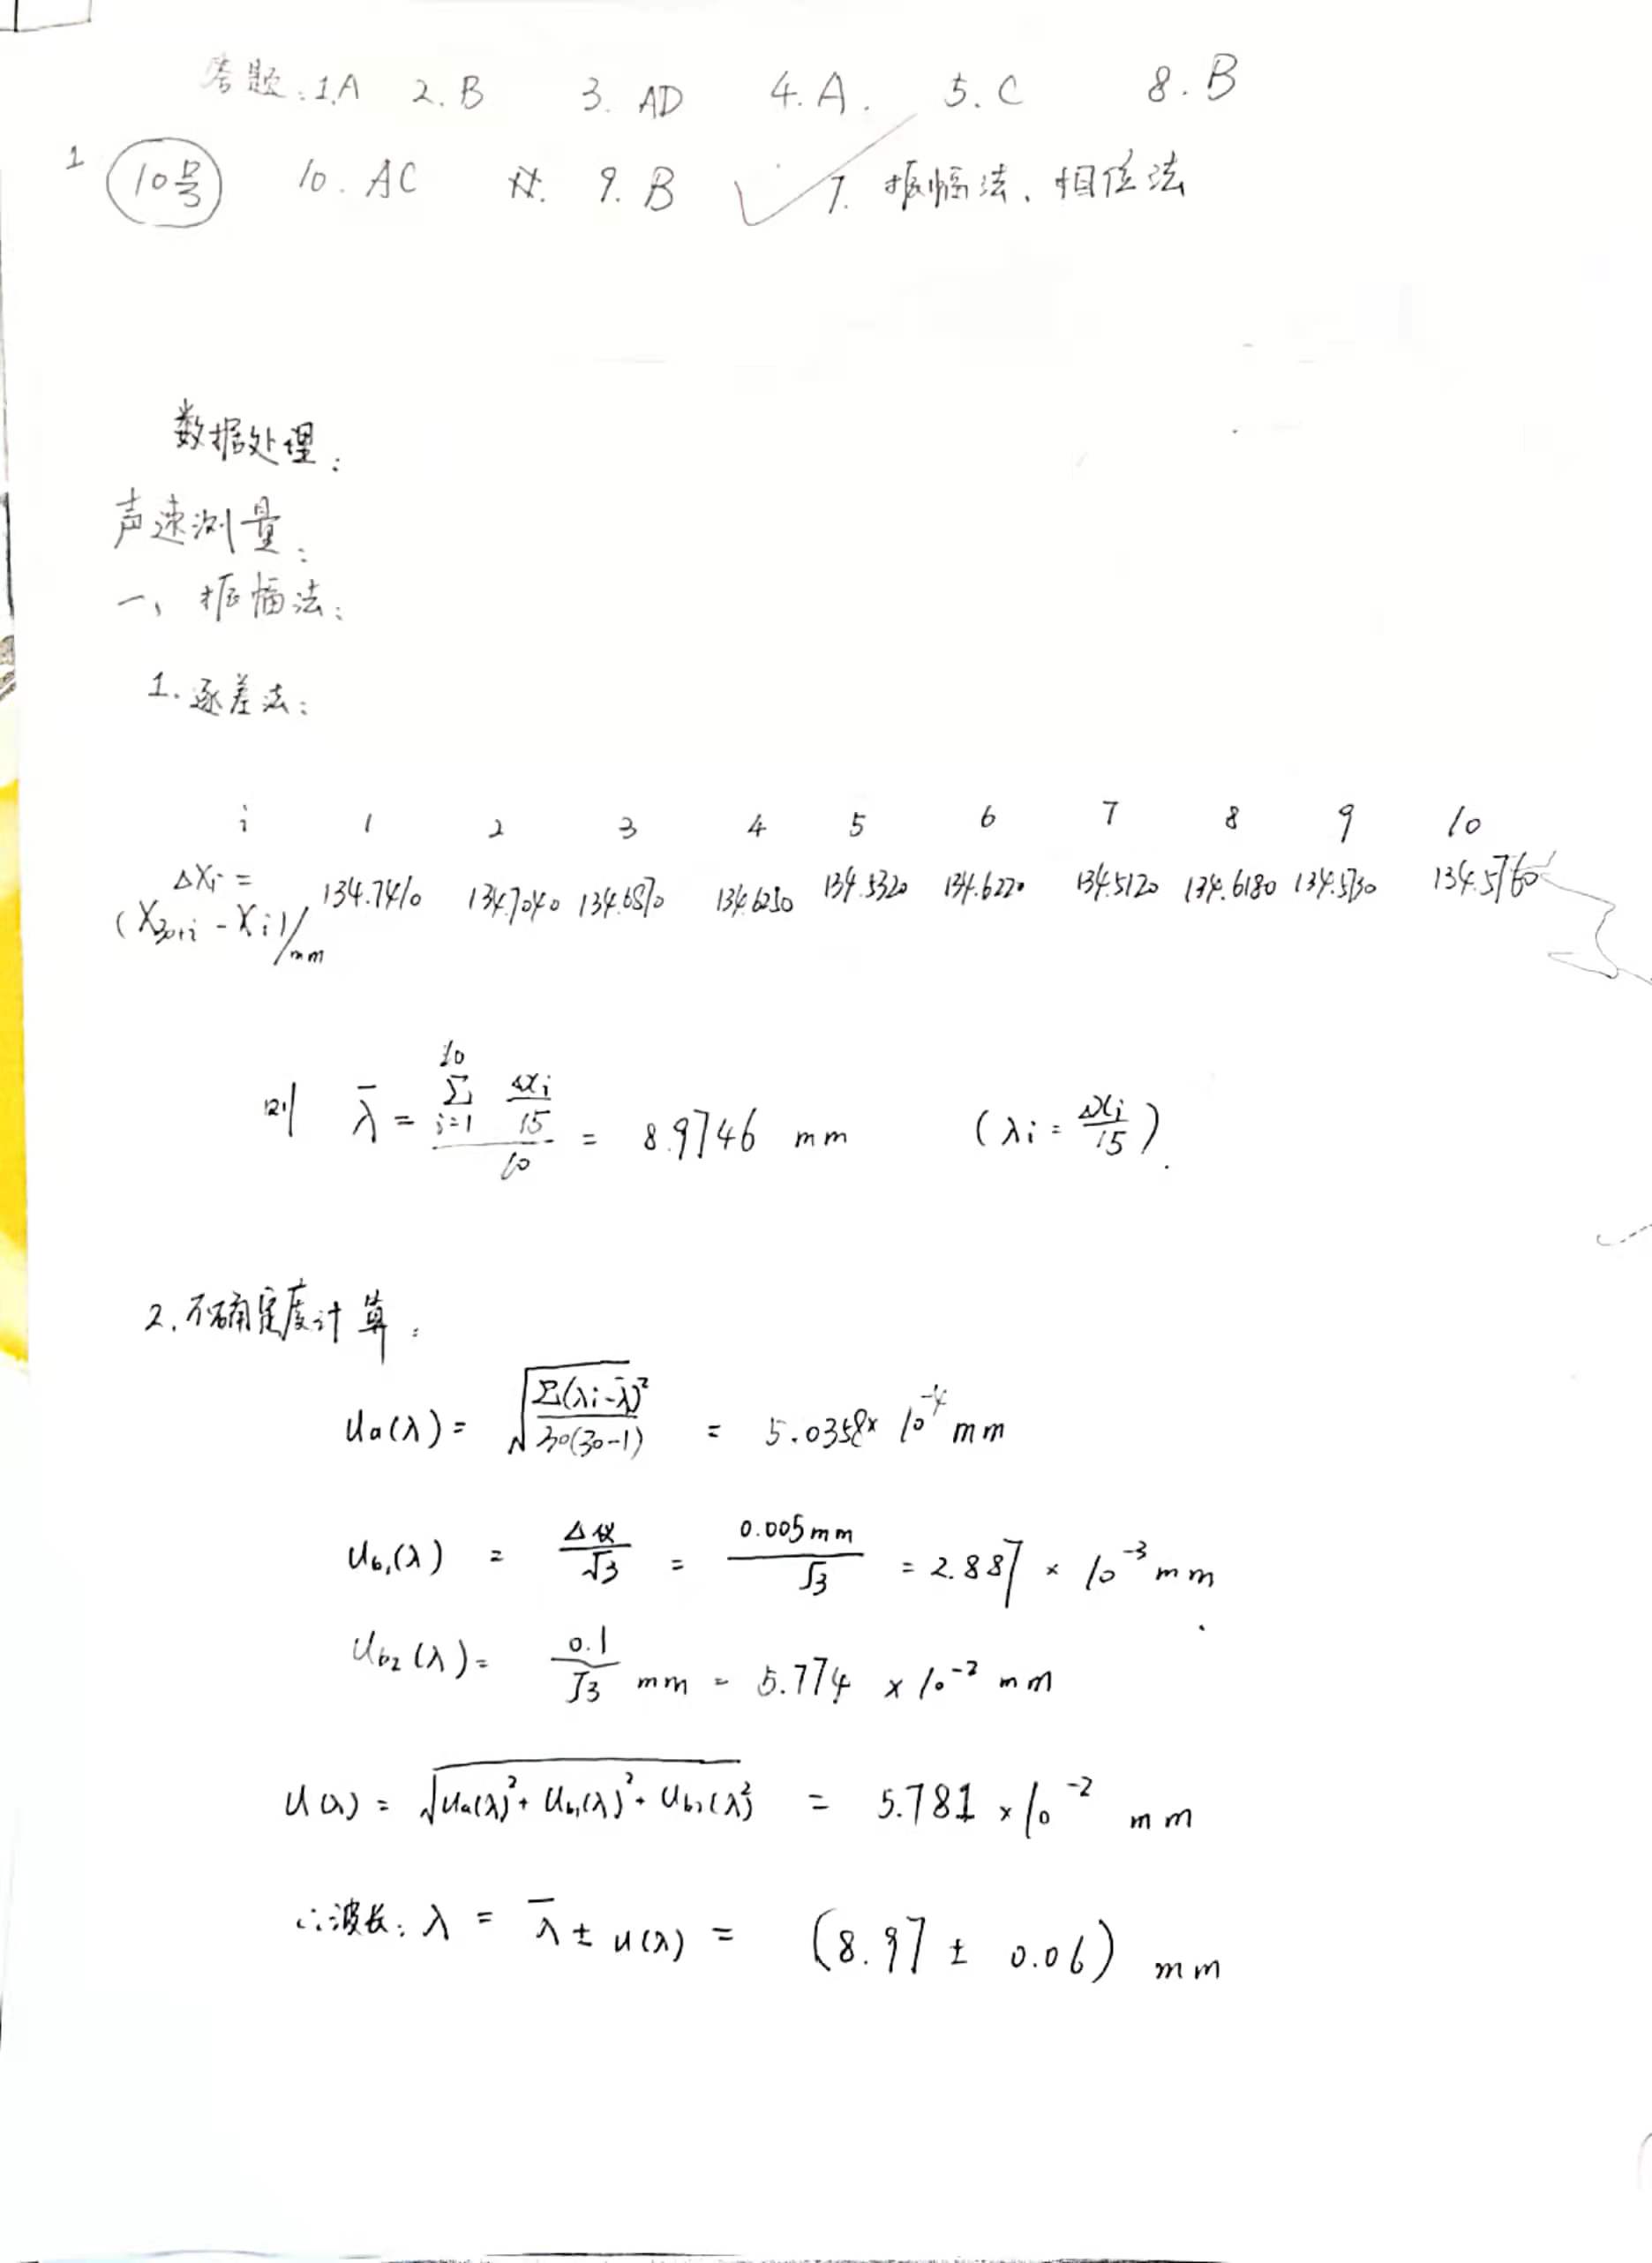 答题:1.A 2.B 3. AD 4.A. 5.C 8.B
1 10号 10. AC 9. B 7. 振幅法、相位法
数据处理:
声速测量:
一、振幅法:
1. 逐差法:
i 1 2 3 4 5 6 7 8 9 10
ΔXi = (X30+i - Xi)/mm 134.7410 134.7040 134.6870 134.6250 134.5320 134.6220 134.5120 134.6180 134.5730 134.5760
则 λ̄ = (Σ_{i=1}^{10} Δxi/15)/10 = 8.9746 mm (λi = Δxi/15).
2.不确定度计算:
Ua(λ) = √(Σ(λi-λ̄)²/30(30-1)) = 5.0358×10⁻⁴ mm
Ub1(λ) = Δ仪/√3 = 0.005mm/√3 = 2.887 × 10⁻³ mm
Ub2(λ) = 0.1/√3 mm = 5.774 × 10⁻² mm
U(λ) = √(Ua(λ)² + Ub1(λ)² + Ub2(λ)²) = 5.781 × 10⁻² mm
∴波长: λ = λ̄ ± u(λ) = (8.97 ± 0.06) mm